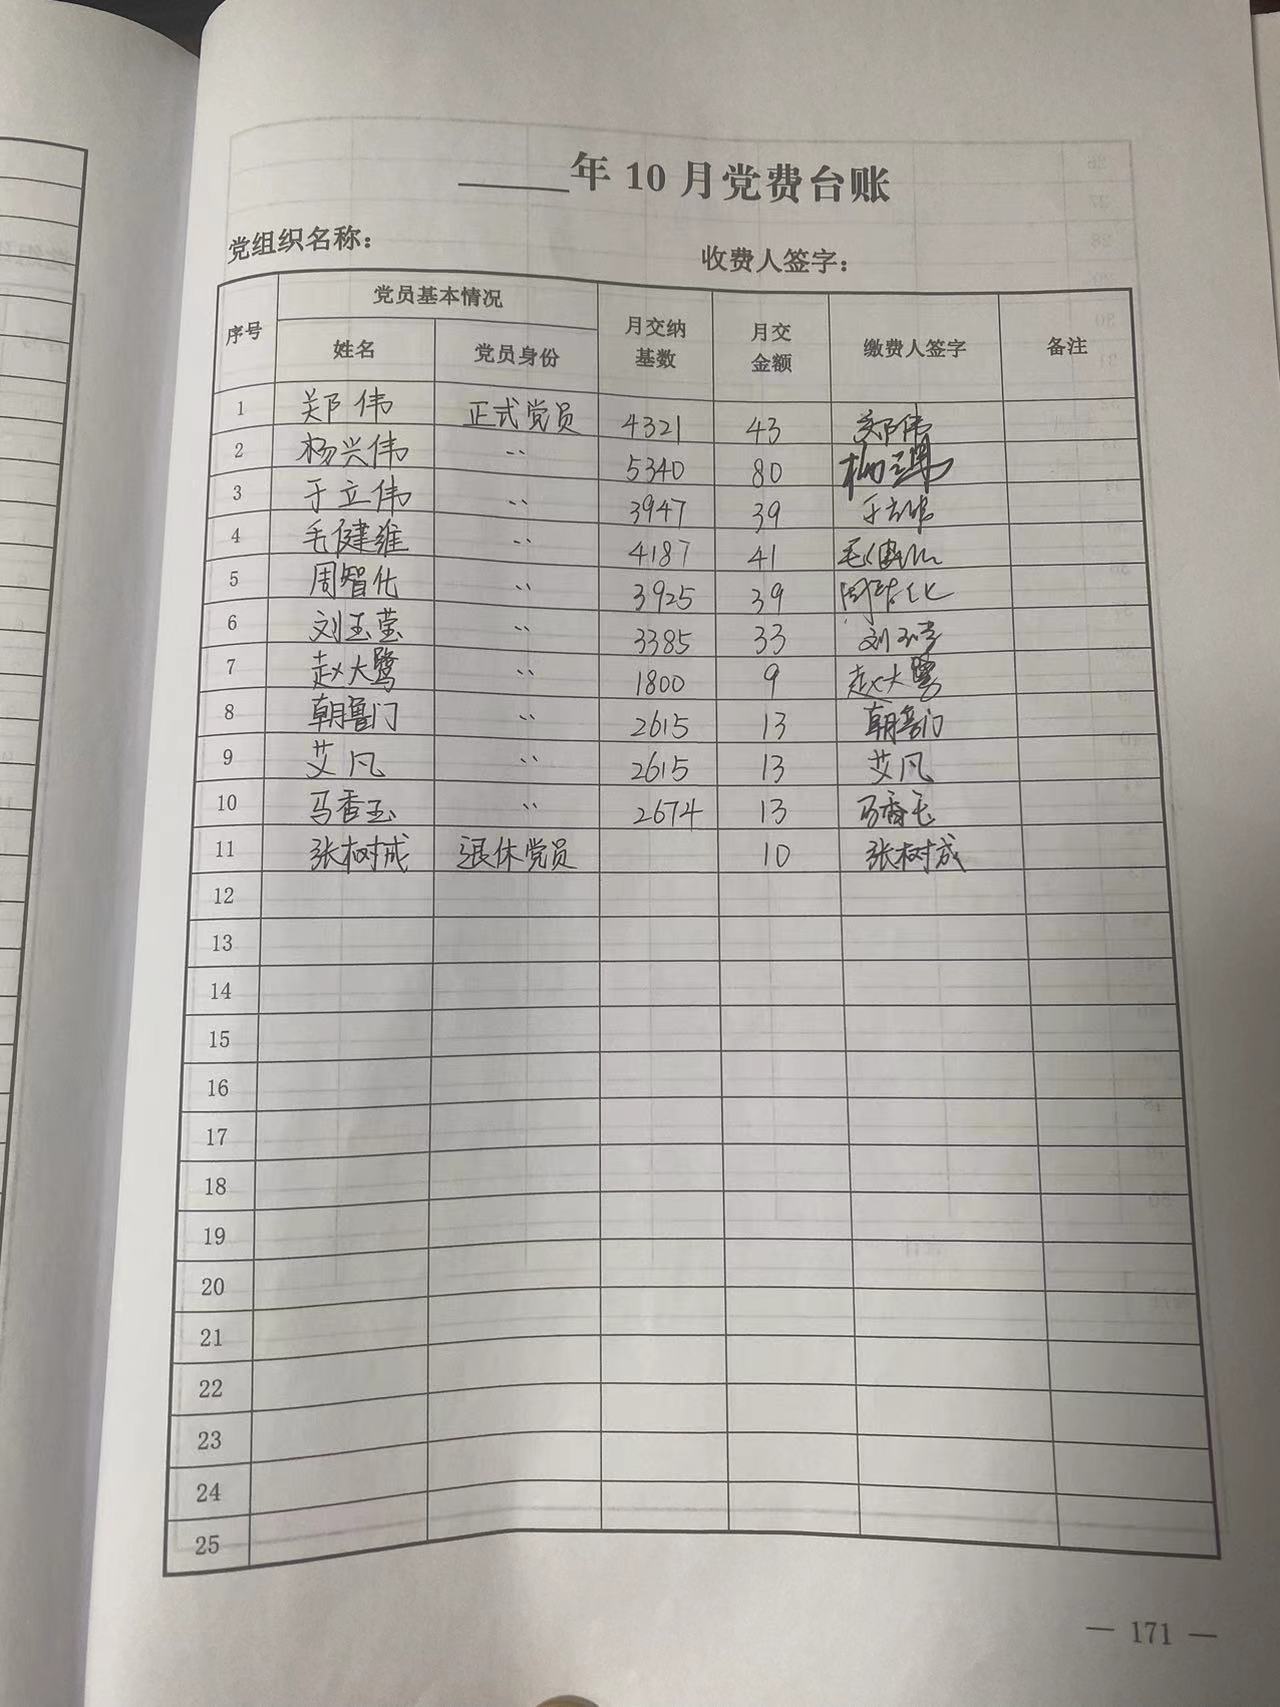 ____年 10 月党费台账
党组织名称： 收费人签字：
序号 党员基本情况 月交纳基数 月交金额 缴费人签字 备注
姓名 党员身份
1 郑伟 正式党员 4321 43 郑伟
2 杨兴伟 〃 5340 80
3 于立伟 〃 3947 39 于立伟
4 毛健维 〃 4187 41 毛健维
5 周智化 〃 3925 39 周智化
6 刘玉莹 〃 3385 33 刘玉莹
7 赵大鹭 〃 1800 9 赵大鹭
8 朝鲁门 〃 2615 13 朝鲁门
9 艾凡 〃 2615 13 艾凡
10 马香玉 〃 2674 13 马香玉
11 张树成 退休党员 10 张树成
12
13
14
15
16
17
18
19
20
21
22
23
24
25
— 171 —